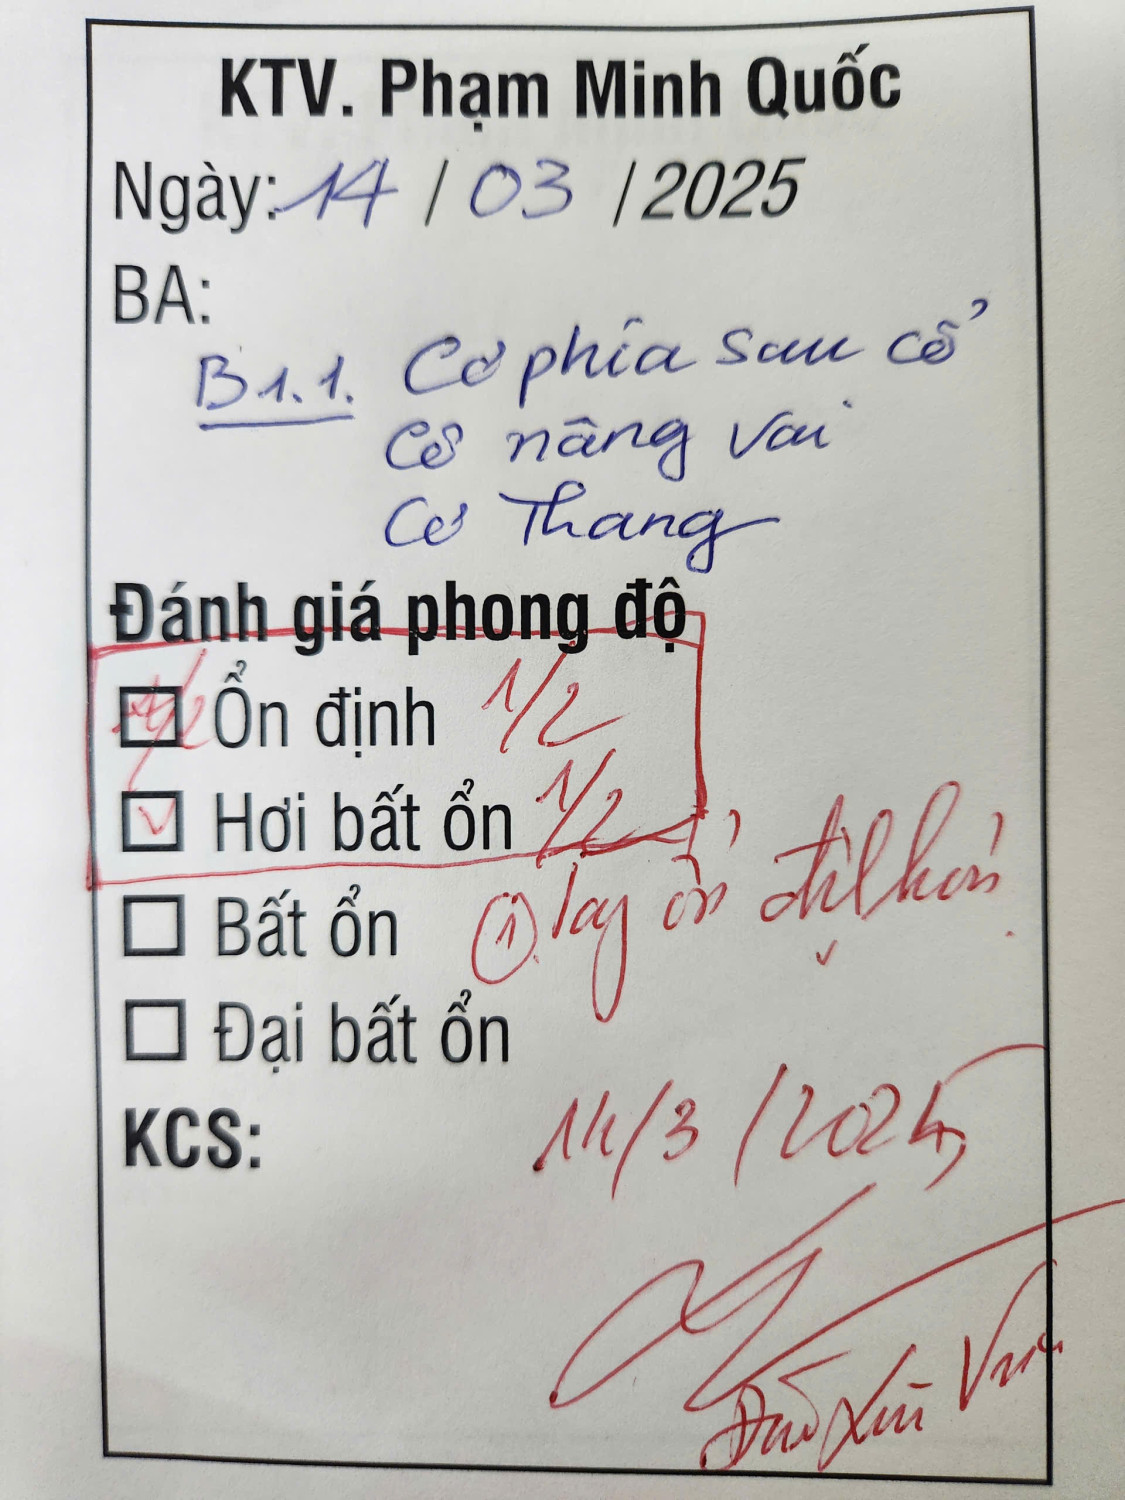 KTV. Phạm Minh Quốc
Ngày: 14 / 03 / 2025
BA:
B1.1. Cơ phía sau cổ
Cơ nâng vai
Cơ Thang
Đánh giá phong độ
Ổn định 1/2
Hơi bất ổn 1/2
Bất ổn ① tay ổn định hơn
Đại bất ổn
KCS: 14/3/2025